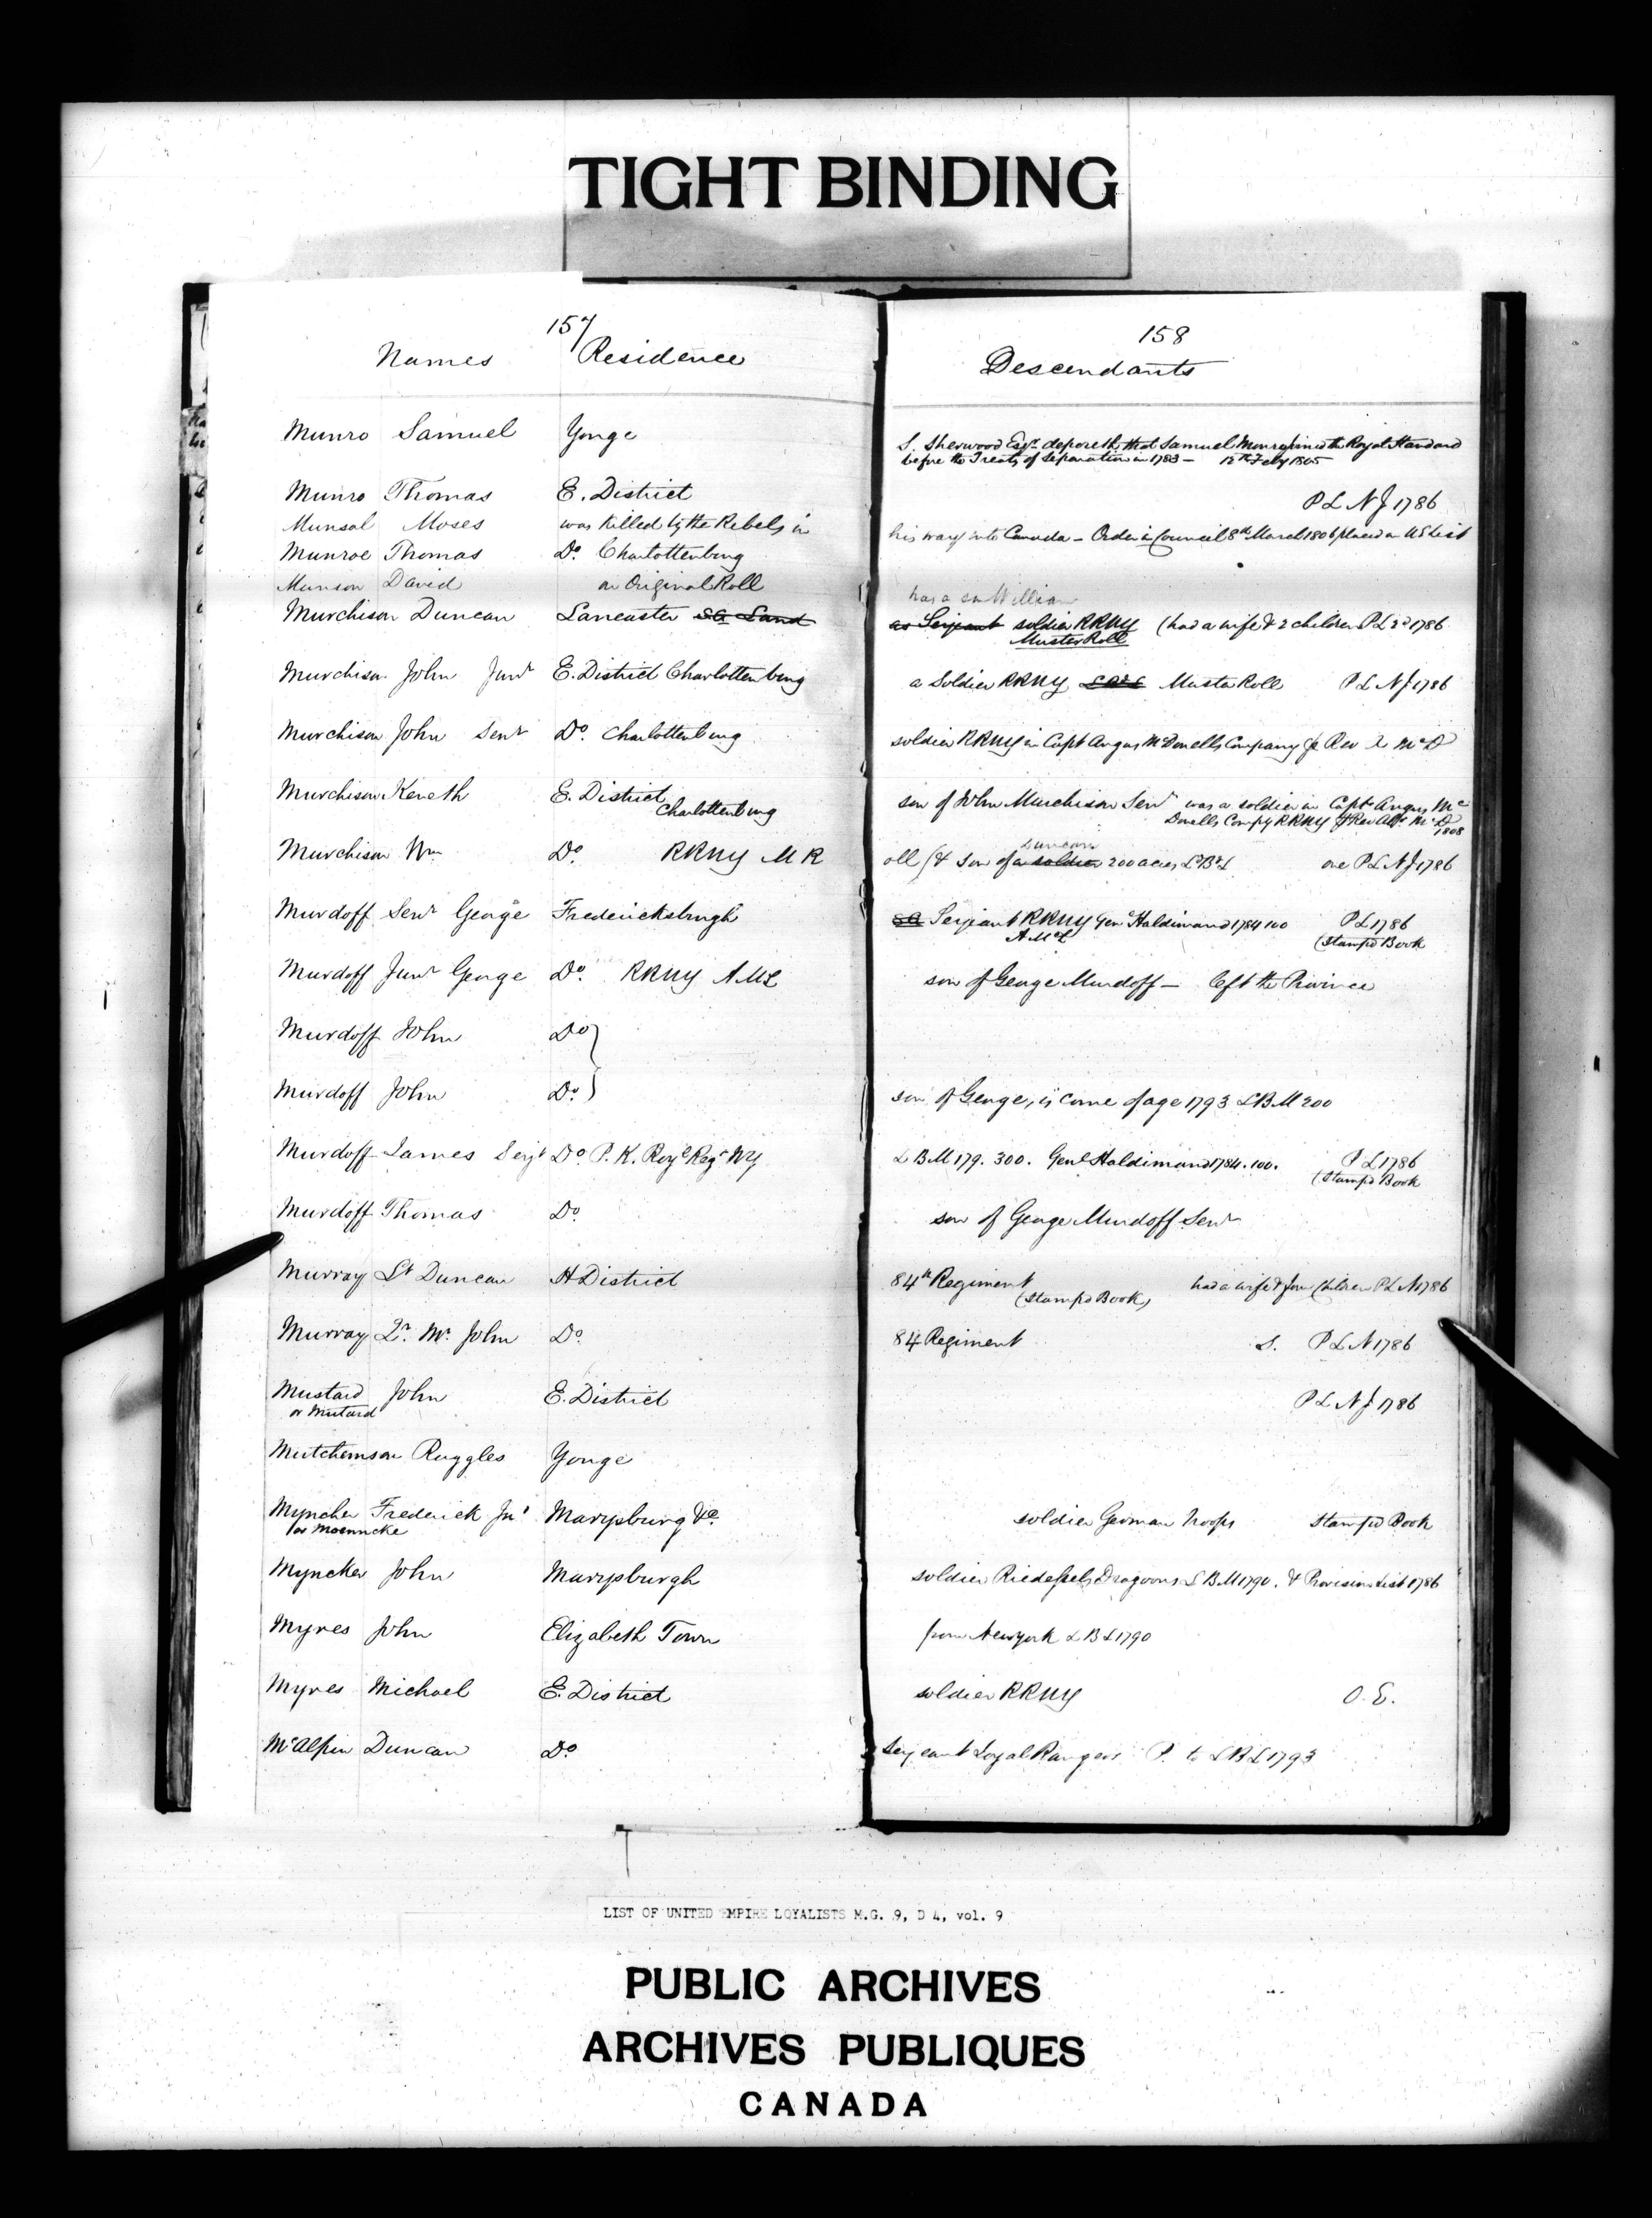 TIGHT BINDING
157
Names Residence
Munro Samuel Yonge
Munro Thomas E. District
Munsal Moses was killed by the Rebels in
Munroe Thomas Do. Charlottenburg
Munson David on Original Roll
Murchison Duncan Lancaster SG Land
Murchison John Junr E. District Charlottenburg
Murchison John Senr Do. Charlottenburg
Murchison Keneth E. District
Charlottenburg
Murchison Wm Do. RRNY M R
Murdoff Senr George Fredericksburgh
Murdoff Junr George Do. RRNY A ML
Murdoff John Do
Murdoff John Do.
Murdoff James Serjt Do P. K. Roye Regt NY
Murdoff Thomas Do.
Murray Lt Duncan H District
Murray Qr. Mr. John Do.
Mustard John E. District
or Mutard
Mutchemson Ruggles Yonge
Myncher Frederick Jnr Marysburg &c.
or Moenncke
Myncker John Marysburgh
Myres John Elizabeth Town
Myres Michael E. District
McAlpin Duncan Do
158
Descendants
S. Sherwood Esqr. deposeth that Samuel Monro joined the Royal Standard
before the Treaty of Separation in 1783 — 12th Feby 1805
P L N J 1786
his way into Canada — Order in Council 8th March 1806 placed on UE List
has a son William
as Serjeant soldier RRNY (had a wife & 2 children PL 2d 1786
Muster Roll
a Soldier RRNY Muster Roll P L N J 1786
soldier RRNY in Capt Angus McDonells Company Rev McD
son of John Murchison Senr was a soldier in Capt. Angus Mc
Donells Compy RRNY Rev Alr. McD
1808
Duncan
oll (& Son of a soldier 200 acres LBL one P L N J 1786
SG Serjeant RRNY Genl Haldimand 1784 100 P L 1786
A McL (Stampd Book
son of George Murdoff — left the Province
son of George, is come of age 1793 LBM 200
L B M 179. 300. Genl Haldimand 1784. 100. P L 1786
(Stampd Book
son of George Murdoff Senr
84th Regiment had a wife & four Children P L N 1786
(Stampd Book)
84 Regiment S. P L N 1786
P L N J 1786
soldier German Troops Stampd Book
soldier Riedesels Dragoons L B M 1790. & Provision List 1786
from Newyork L B L 1790
soldier RRNY O. E.
Serjeant Loyal Rangers P. to L B L 1793
LIST OF UNITED EMPIRE LOYALISTS M.G. 9, D 4, vol. 9
PUBLIC ARCHIVES
ARCHIVES PUBLIQUES
CANADA